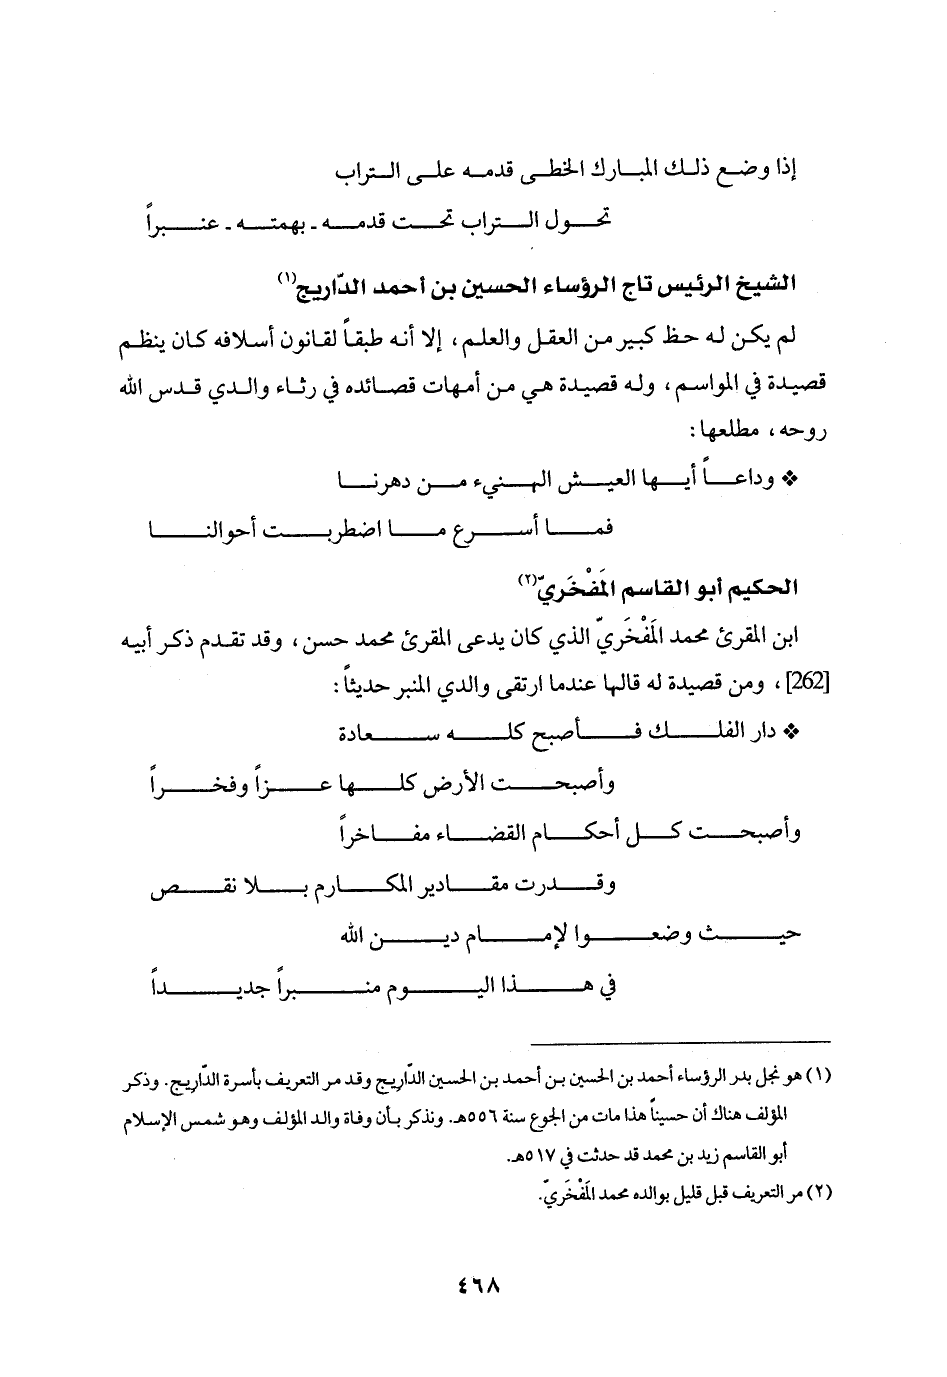 إذا وضع ذلك المبارك الخطى قدمه على التراب
تحول التراب تحت قدمه ـ بهمته ـ عنبراً
الشيخ الرئيس تاج الرؤساء الحسين بن أحمد الدّاريج(١)
لم يكن له حظ كبير من العقل والعلم، إلا أنه طبقاً لقانون أسلافه كان ينظم
قصيدة في المواسم، وله قصيدة هي من أمهات قصائده في رثاء والدي قدس الله
روحه، مطلعها:
❖ وداعاً أيها العيش الهنيء من دهرنا
فما أسرع ما اضطربت أحوالنا
الحكيم أبو القاسم المَفْخَريّ(٢)
ابن المقرئ محمد المَفْخَريّ الذي كان يدعى المقرئ محمد حسن، وقد تقدم ذكر أبيه
[262]، ومن قصيدة له قالها عندما ارتقى والدي المنبر حديثاً:
❖ دار الفلك فأصبح كله سعادة
وأصبحت الأرض كلها عزاً وفخراً
وأصبحت كل أحكام القضاء مفاخراً
وقدرت مقادير المكارم بلا نقص
حيث وضعوا لإمام دين الله
في هذا اليوم منبراً جديداً
(١) هو نجل بدر الرؤساء أحمد بن الحسين بن أحمد بن الحسين الدّاريج وقد مر التعريف بأسرة الدّاريج. وذكر
المؤلف هناك أن حسيناً هذا مات من الجوع سنة ٥٥٦هـ. ونذكر بأن وفاة والد المؤلف وهو شمس الإسلام
أبو القاسم زيد بن محمد قد حدثت في ٥١٧هـ.
(٢) مر التعريف قبل قليل بوالده محمد المَفْخَريّ.
٤٦٨